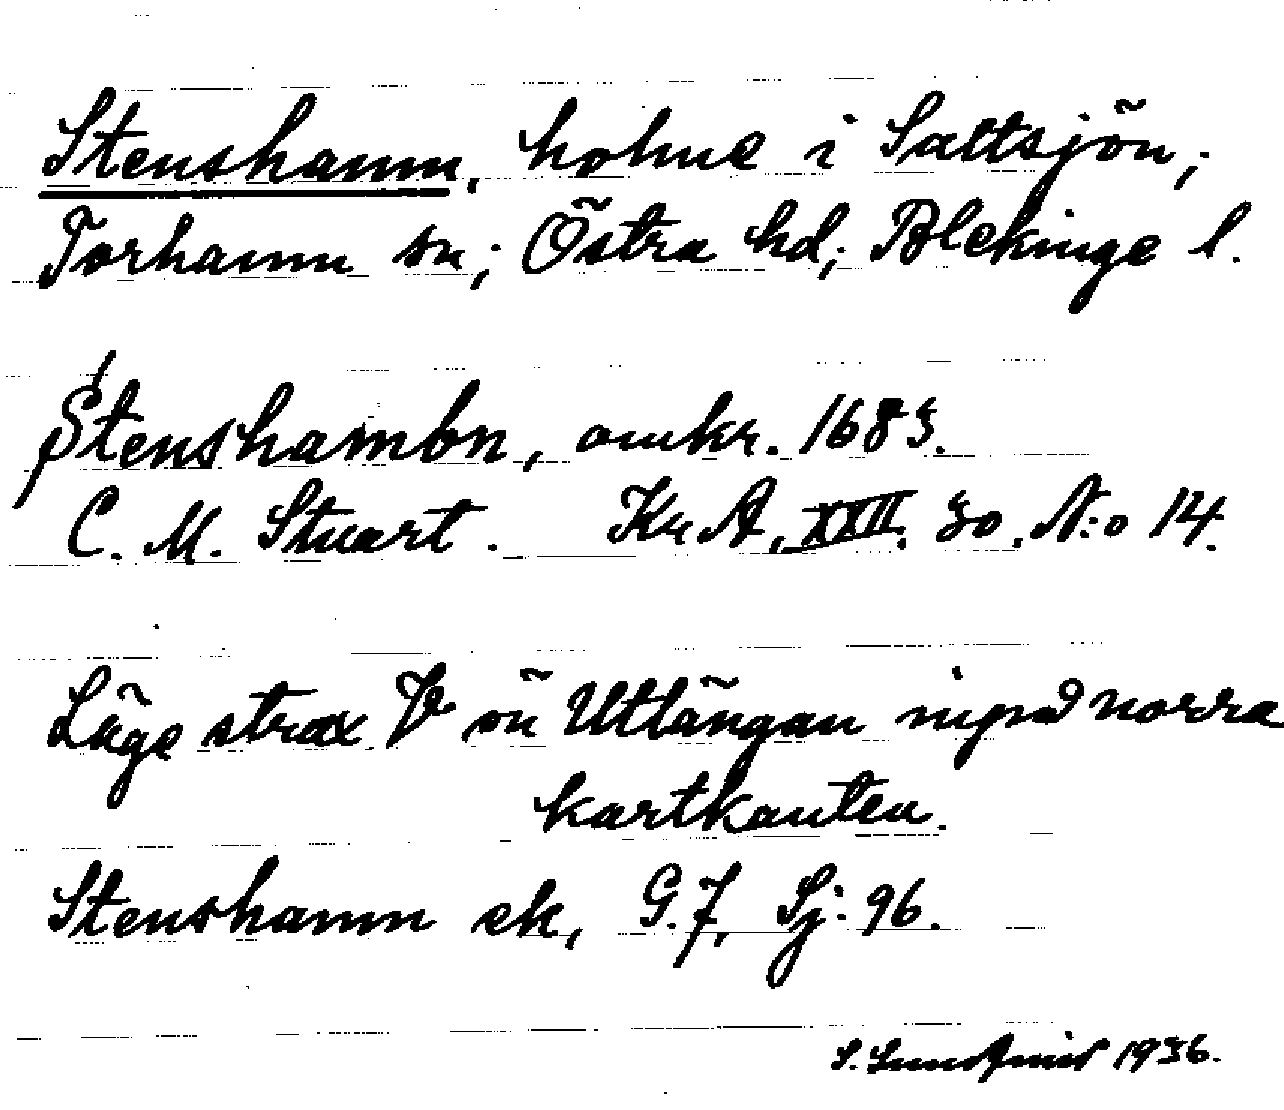 Stenshamn, holme i Saltsjön,
Torhamn sn; Östra hd; Blekinge l.
Stenshambn, omkr. 1683.
C. M. Stuart. KrA, XXII. 30. N:o 14.
Läge strax V om Utlängan invid norra
kartkanten.
Stenshamn ek, G.7, Sj: 96.
S. Lundqvist 1936.